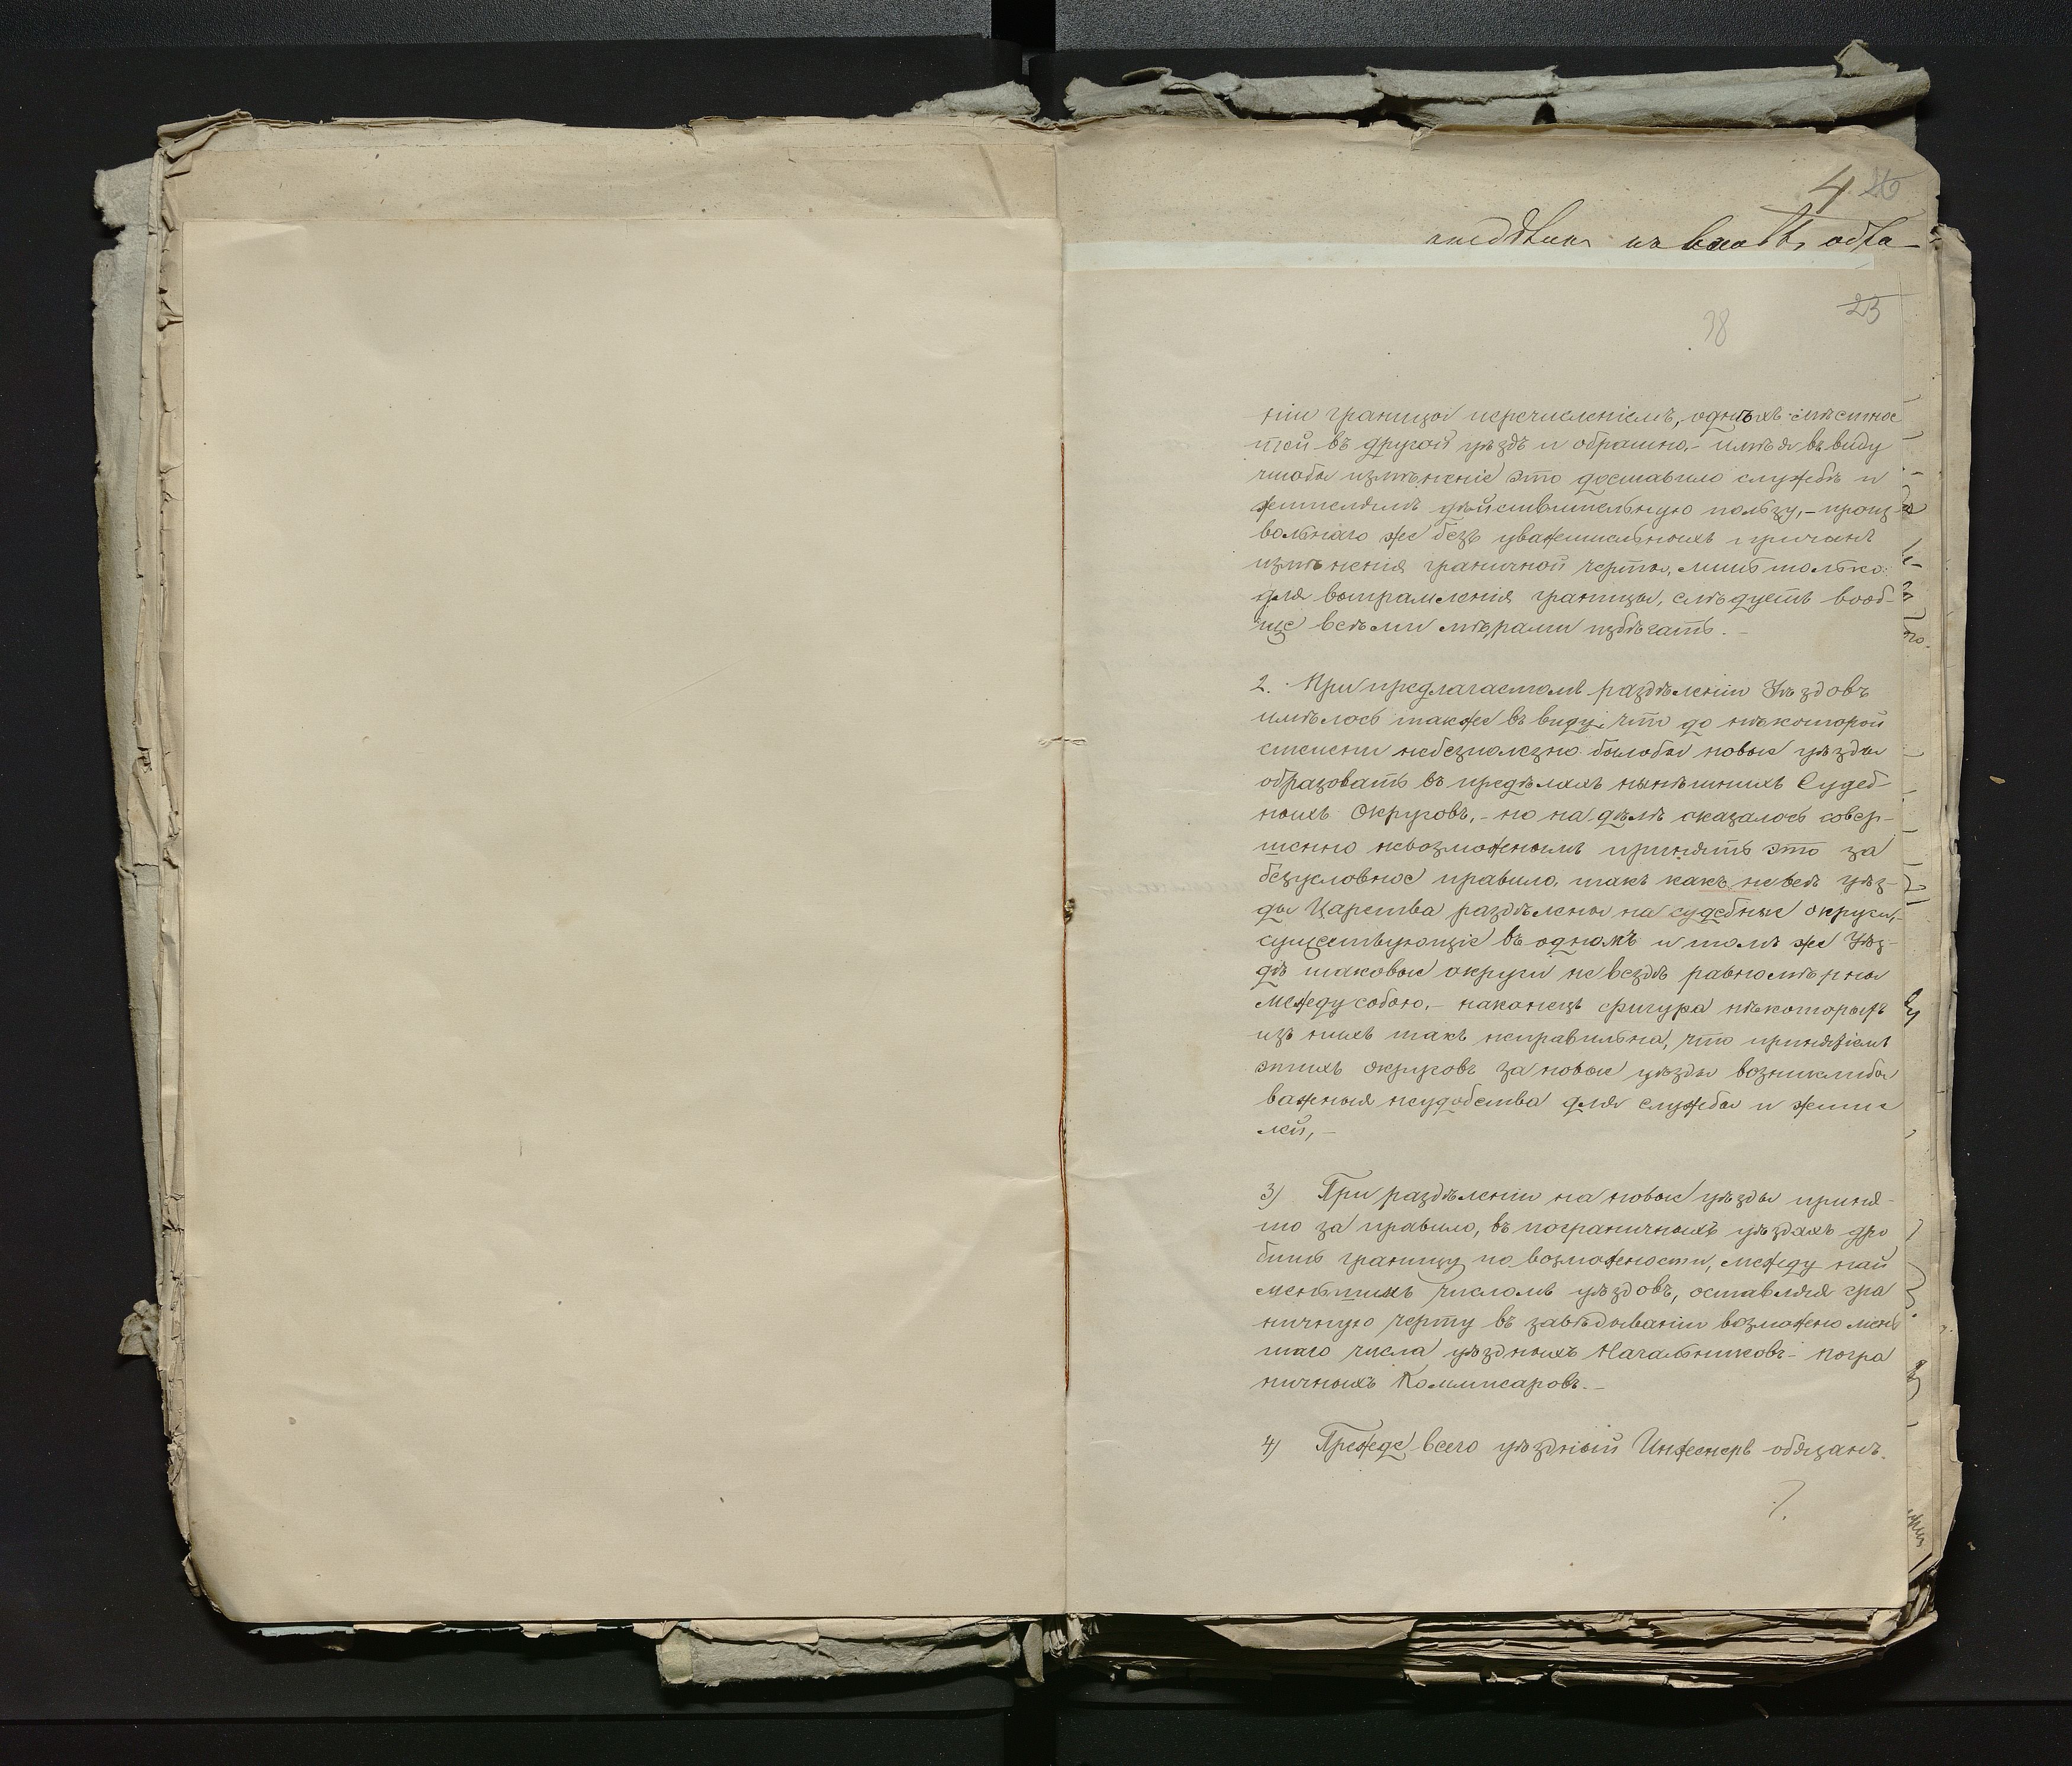 4
23
38
ніи границы перечисленіемъ, однѣхъ мѣстнос
тей въ другой уѣздъ и обратно,- имѣя въ виду
чтобы измѣненіе это доставило службѣ и
жителямъ дѣйствительную пользу,- произ-
вольнаго же безъ уважительныхъ причинъ
измѣненія граничной черты, лишь только
для выпрамленія границы, слѣдуетъ вооб-
ще всѣми мѣрами избѣгать.-
2. При предлагаемомъ раздѣленіи Уѣздовъ
имѣлось также въ виду, что до нѣкоторой
степени небезполезно былобы новые уѣзды
образовать въ предѣлахъ нынѣшнихъ Судеб-
ныхъ Округовъ,- но на дѣлѣ оказалось совер-
шенно невозможнымъ принять это за
безусловное правило, такъ какъ не всѣ уѣз-
ды Царства раздѣлены на судебные округи,-
существующіе въ одномъ и томъ же Уѣз-
дѣ таковые округи не вездѣ равномѣрны
между собою,- наконецъ фигура нѣкоторыхъ
изъ нихъ такъ неправильна, что принятіемъ
этихъ округовъ за новые уѣзды возниклибы
важныя неудобства для службы и жите
лей,-
3) При раздѣленіи на новые уѣзды приня-
то за правило, въ пограничныхъ уѣздахъ дро
бить границу по возможности, между най
меньшихъ числомъ уѣздовъ, оставляя гра
ничную черту въ завѣдываніи возможно мень
шаго числа уѣздныхъ Начальниковъ- погра
ничныхъ Коммисаровъ.-
4) Прежде всего уѣздный Инженеръ обязанъ